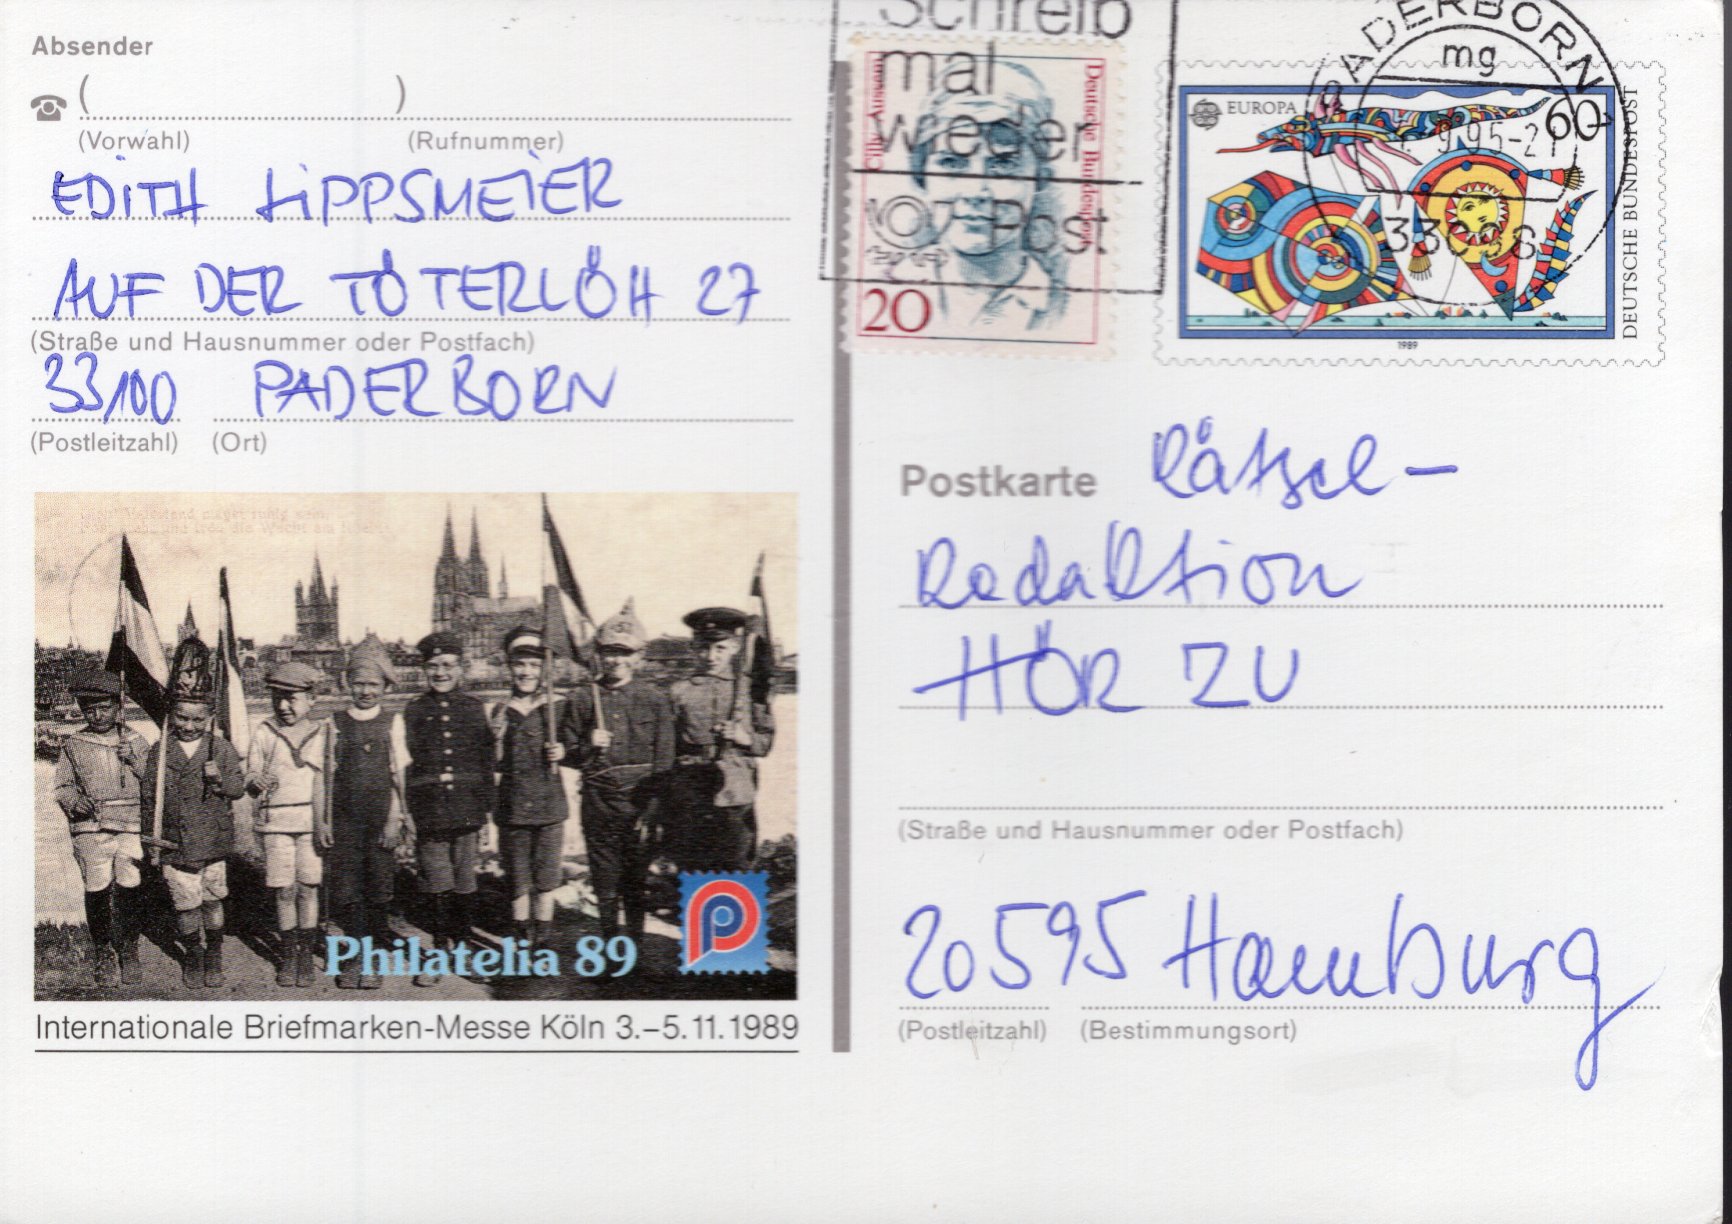 Absender
( )
(Vorwahl) (Rufnummer)
EDITH LIPPSMEIER
AUF DER TÖTERLÖH 27
(Straße und Hausnummer oder Postfach)
33100 PADERBORN
(Postleitzahl) (Ort)
Philatelia 89
Internationale Briefmarken-Messe Köln 3.–5.11.1989
Schreib
mal
wieder
Post
Cilly Aussem
Deutsche Bundespost
20
PADERBORN 1
mg
9.95-21
EUROPA
60
DEUTSCHE BUNDESPOST
1989
Postkarte Rätsel-
Redaktion
HÖR ZU
(Straße und Hausnummer oder Postfach)
20595 Hamburg
(Postleitzahl) (Bestimmungsort)